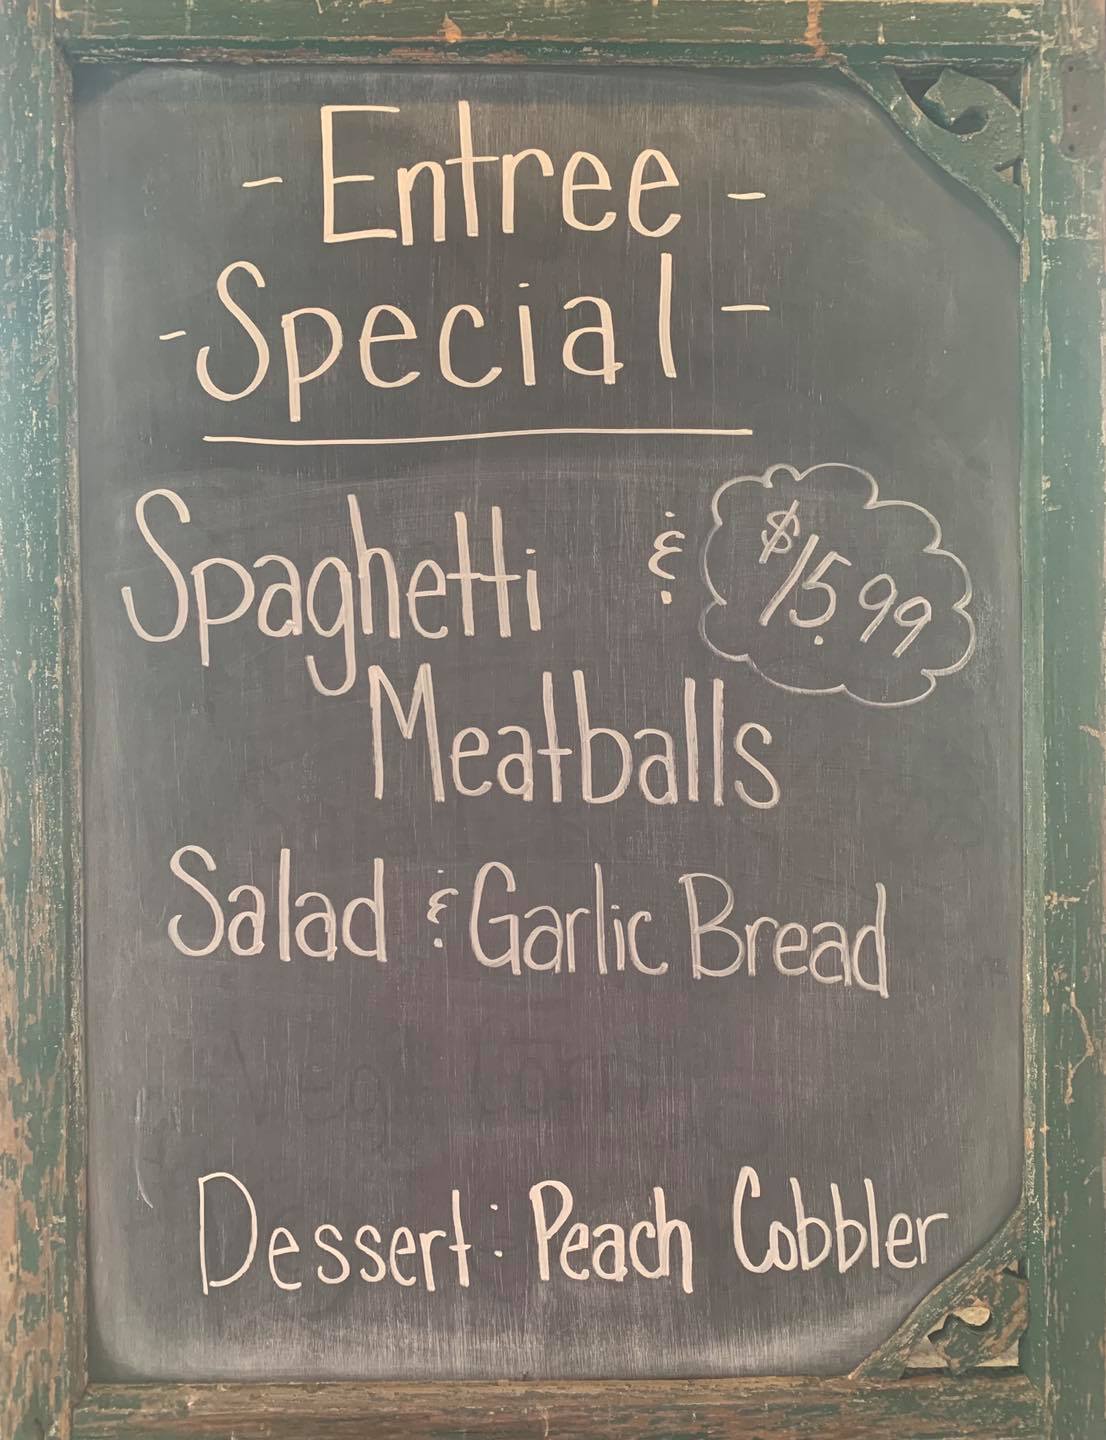 - Entree -
- Special -
Spaghetti &
$15.99
Meatballs
Salad & Garlic Bread
Dessert: Peach Cobbler